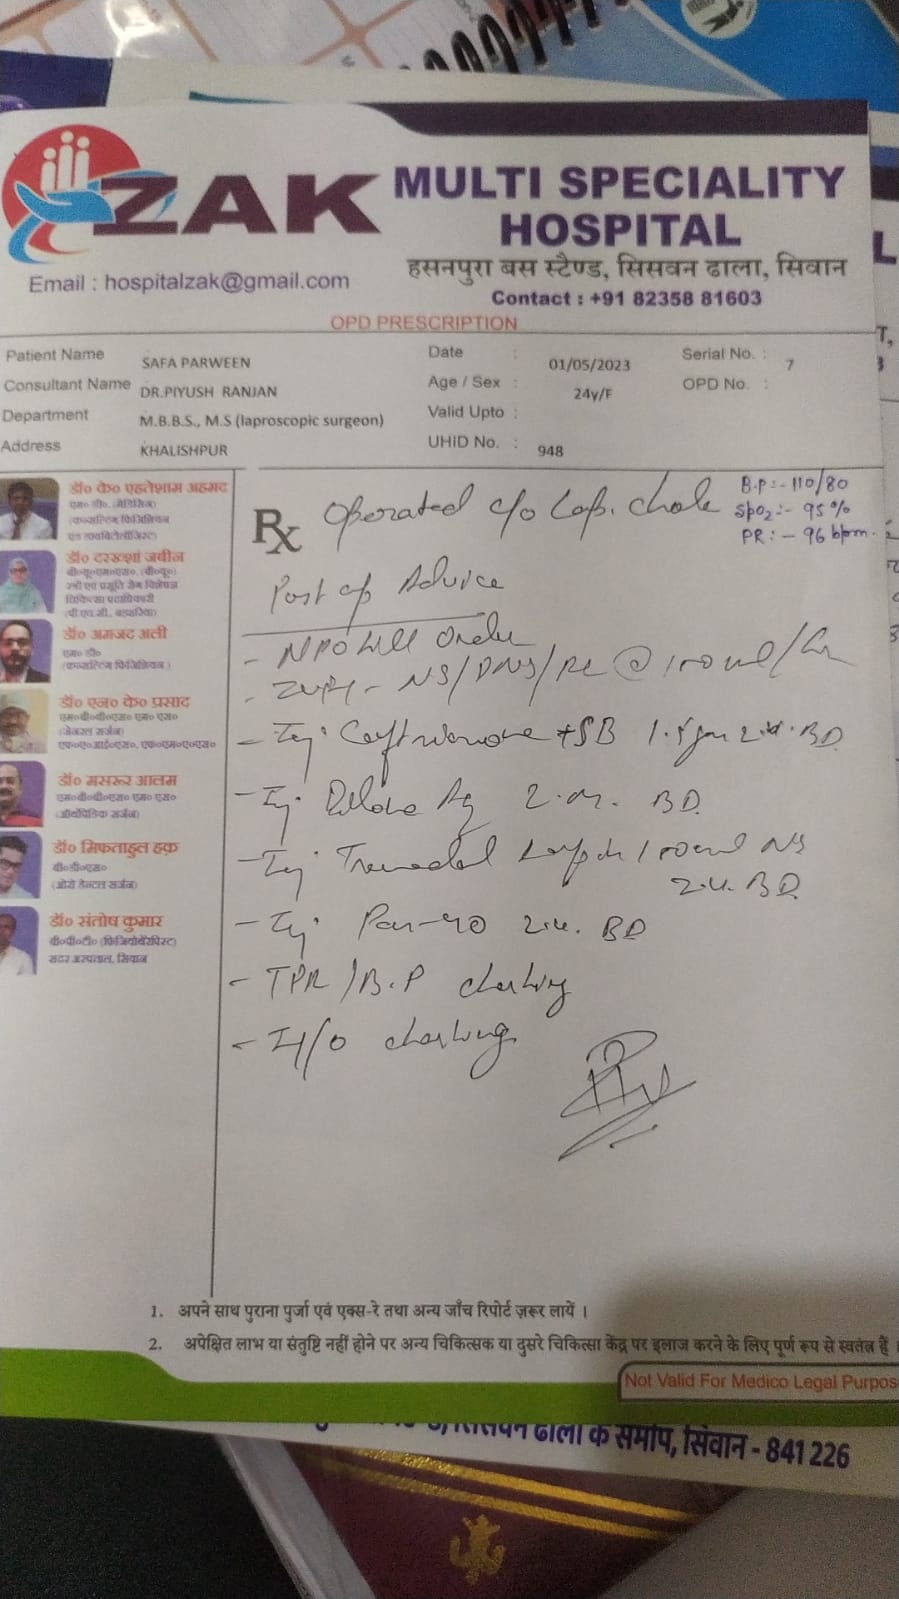 ZAK MULTI SPECIALITY
HOSPITAL
हसनपुरा बस स्टैण्ड, सिसवन ढाला, सिवान
Email : hospitalzak@gmail.com
Contact : +91 82358 81603
OPD PRESCRIPTION
Patient Name SAFA PARWEEN Date : 01/05/2023 Serial No. : 7
Consultant Name DR.PIYUSH RANJAN Age / Sex : 24y/F OPD No. :
Department M.B.B.S., M.S (laproscopic surgeon) Valid Upto :
Address KHALISHPUR UHID No. : 948
डॉ० के० एहतेशाम अहमद
एम० डी० (मेडिसिन)
(कन्सल्टिंग फिजिशियन
एंड डायबिटोलॉजिस्ट)
डॉ० दरख्शां जबीन
बी०यू०एम०एस०, (बी०यू०)
स्त्री एवं प्रसूति रोग विशेषज्ञ
चिकित्सा पदाधिकारी
(पी.एच.सी., बड़हरिया)
डॉ० अमजद अली
एम० डी०
(कन्सल्टिंग फिजिशियन)
डॉ० एन० के० प्रसाद
एम०बी०बी०एस० एम० एस०
(जेनरल सर्जन)
एफ०ए०आई०एस०, एफ०एम०ए०एस०
डॉ० मसरूर आलम
एम०बी०बी०एस० एम० एस०
(ऑर्थोपेडिक सर्जन)
डॉ० मिफताहुल हक़
बी०डी०एस०
(ओरो डेन्टल सर्जन)
डॉ० संतोष कुमार
बी०पी०टी० (फिजियोथेरेपिस्ट)
सदर अस्पताल, सिवान
Rx Operated c/o Lap. chole
B.P:- 110/80
SPO2:- 95%
PR:- 96 bpm.
Post op Advice
- NPO till order
- NS/DNS/RL @ 100 ml/hr
- Inj. Ceftriaxone + SB 1.5 gm BD
- Inj. BD
- Inj. Tramadol in 100 ml NS
BD
- Inj. Pan-40 BD
- TPR/B.P charting
- I/O charting
1. अपने साथ पुराना पुर्जा एवं एक्स-रे तथा अन्य जाँच रिपोर्ट ज़रूर लायें ।
2. अपेक्षित लाभ या संतुष्टि नहीं होने पर अन्य चिकित्सक या दुसरे चिकित्सा केंद्र पर इलाज करने के लिए पूर्ण रूप से स्वतंत्र हैं ।
Not Valid For Medico Legal Purpos
ढाला के समीप, सिवान - 841 226